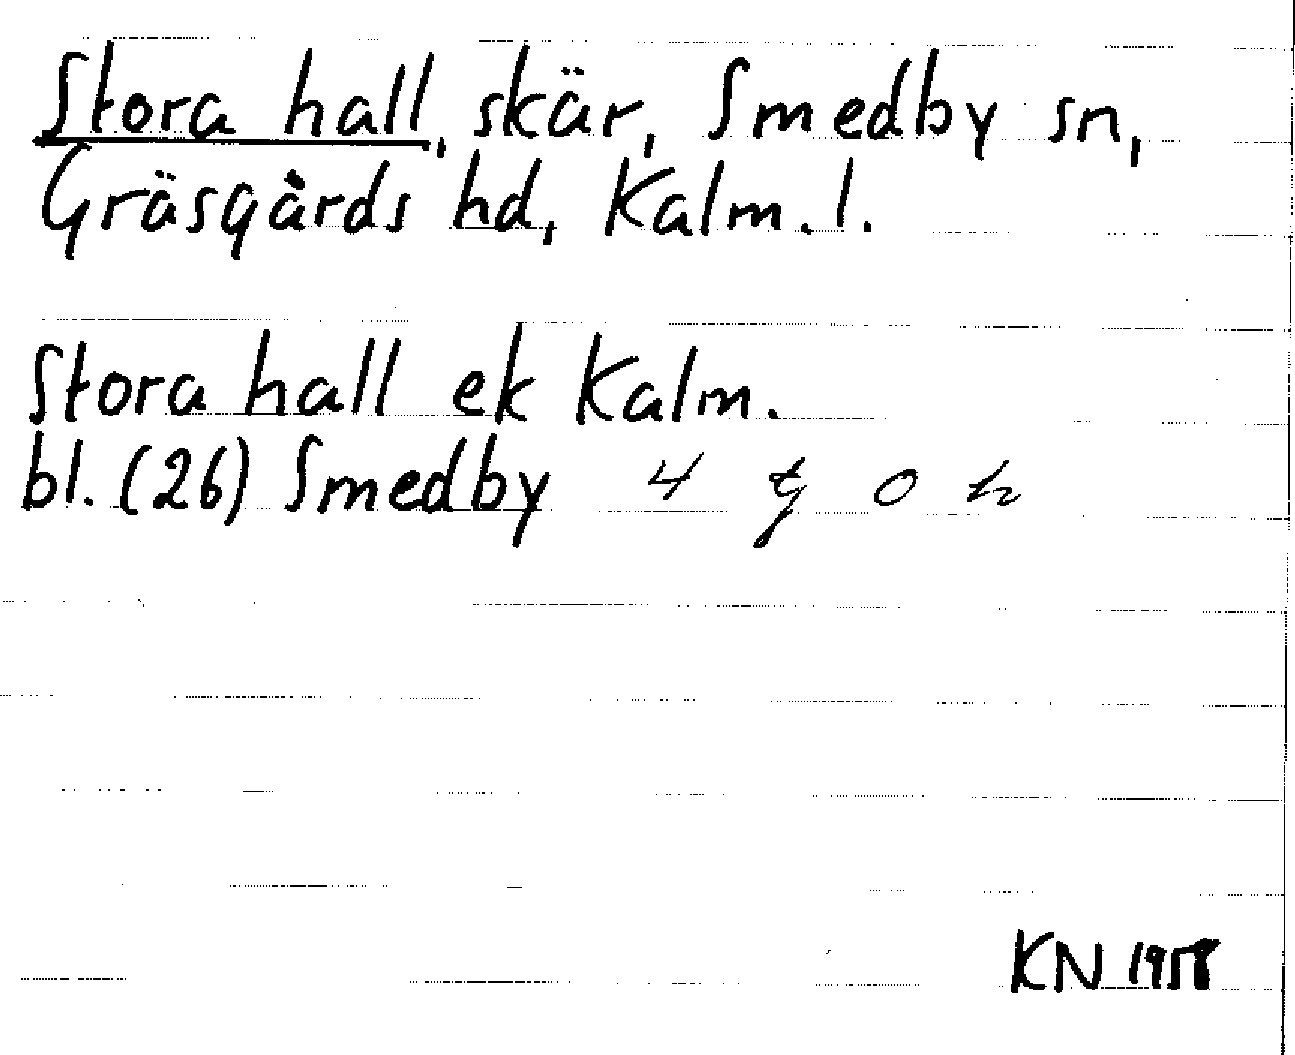 Stora hall, skär, Smedby sn,
Gräsgårds hd, Kalm. l.
Stora hall ek Kalm.
bl. (26) Smedby 4 g o h
KN 1958